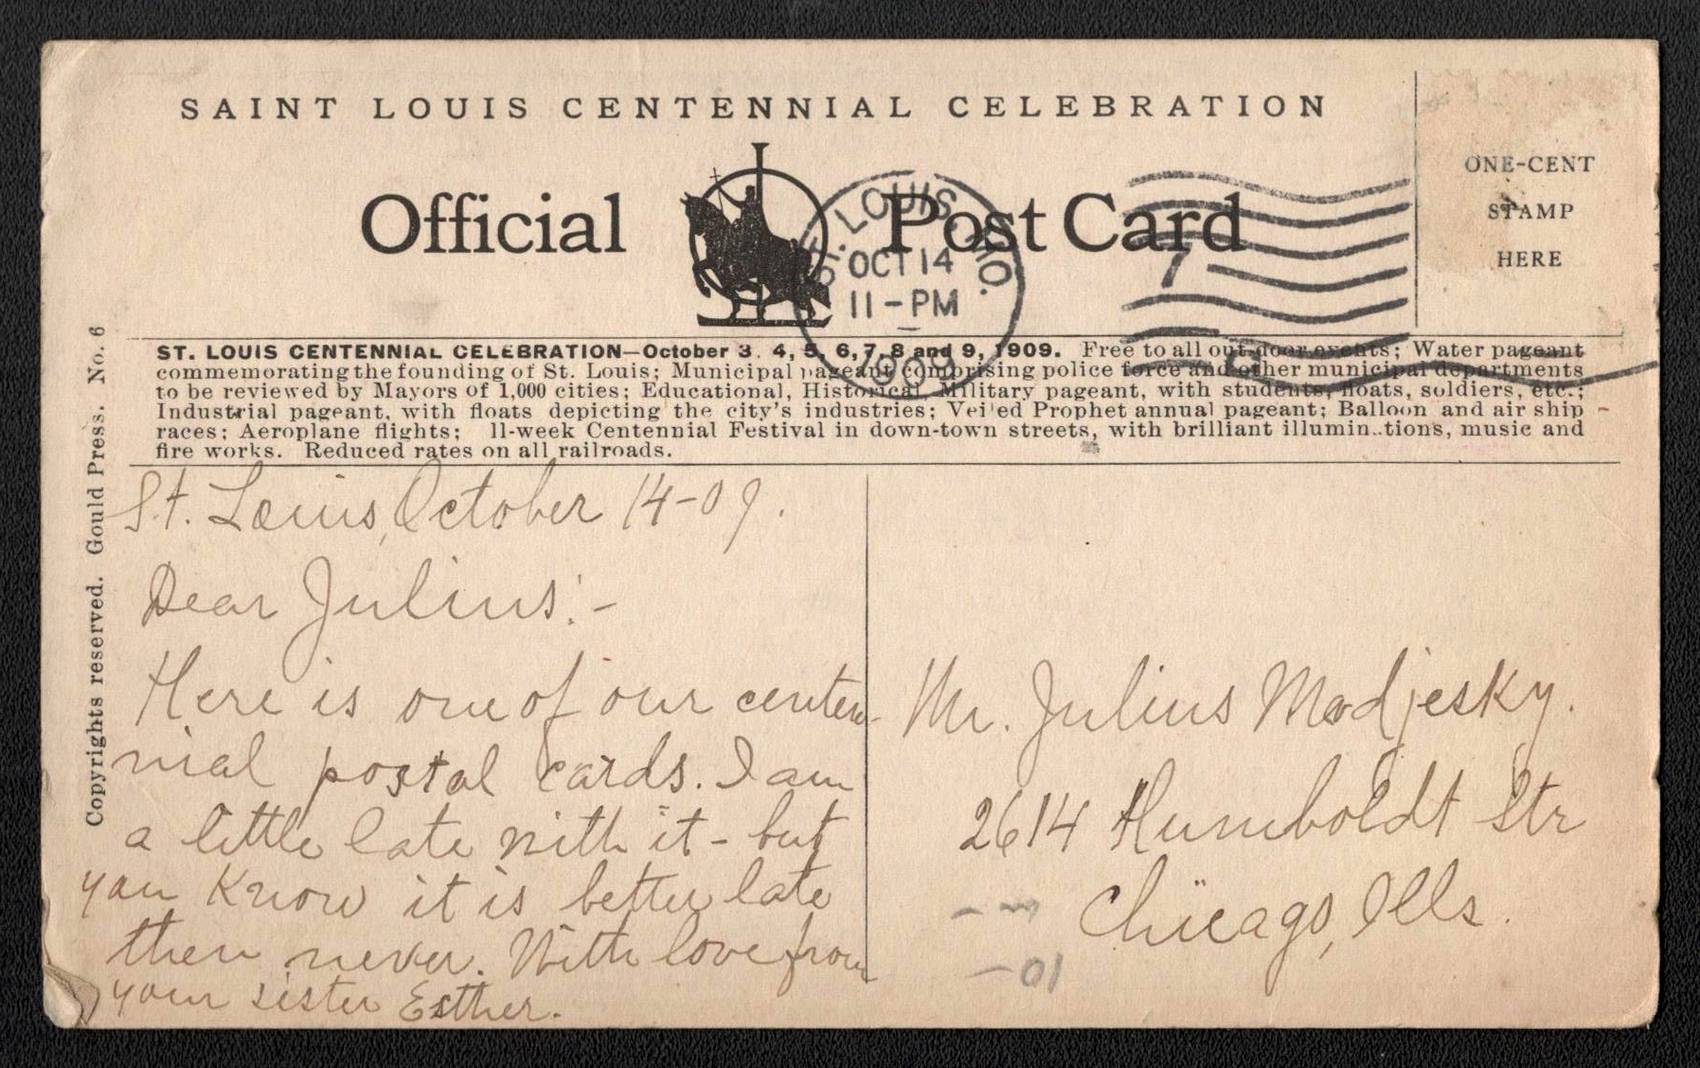 SAINT LOUIS CENTENNIAL CELEBRATION
Official Post Card
ONE-CENT
STAMP
HERE
ST. LOUIS, MO.
OCT 14
11-PM
09
7
ST. LOUIS CENTENNIAL CELEBRATION—October 3. 4, 5, 6, 7, 8 and 9, 1909. Free to all out-door events; Water pageant
commemorating the founding of St. Louis; Municipal pageant comprising police force and other municipal departments
to be reviewed by Mayors of 1,000 cities; Educational, Historical, Military pageant, with students, floats, soldiers, etc.;
Industrial pageant, with floats depicting the city's industries; Veiled Prophet annual pageant; Balloon and air ship
races; Aeroplane flights; ll-week Centennial Festival in down-town streets, with brilliant illuminations, music and
fire works. Reduced rates on all railroads.
Copyrights reserved. Gould Press. No. 6
St. Louis, October 14-09.
Dear Julius:-
Here is one of our centen-
nial postal cards. I am
a little late with it - but
you know it is better late
then never. With love from
your sister Esther.
Mr. Julius Modjesky.
2614 Humboldt Str
Chicago, Ills.
-01